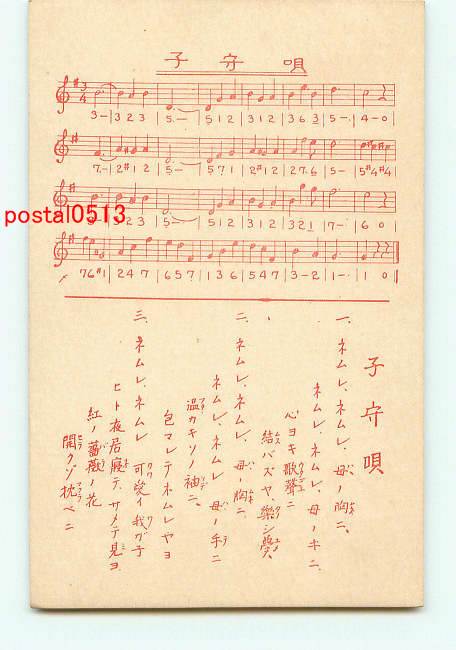 子守唄
3
4
3- | 3 2 3 | 5.- | 5 1 2 | 3 1 2 | 3 6 3 | 5-. | 4-0
7.- | 2# 1 2 | 5- | 5 7 1 | 2# 1 2 | 2 7. 6 | 5- | 5#4#4
postal0513
3 2 3 | 5.- | 5 1 2 | 3 1 2 | 3 2 1 | 7-. | 6 0
7 6#1 | 2 4 7 | 6 5 7 | 1 3 6 | 5 4 7 | 3-2 | 1-. | 1 0
子守唄
一、ネムレ、ネムレ、母ノ胸ニ、
ネムレ、ネムレ、母ノ手ニ、
心ヨキ歌聲ニ
結バズヤ、樂シ夢、
二、ネムレ、ネムレ、母ノ胸ニ、
ネムレ、ネムレ 母ノ手ニ
温カキソノ袖ニ、
包マレテネムレヤヨ
三、ネムレ、ネムレ 可愛イ我ガ子
ヒト夜居寢テ、サメテ見ヨ
紅ノ薔薇ノ花
開クゾ枕ベニ